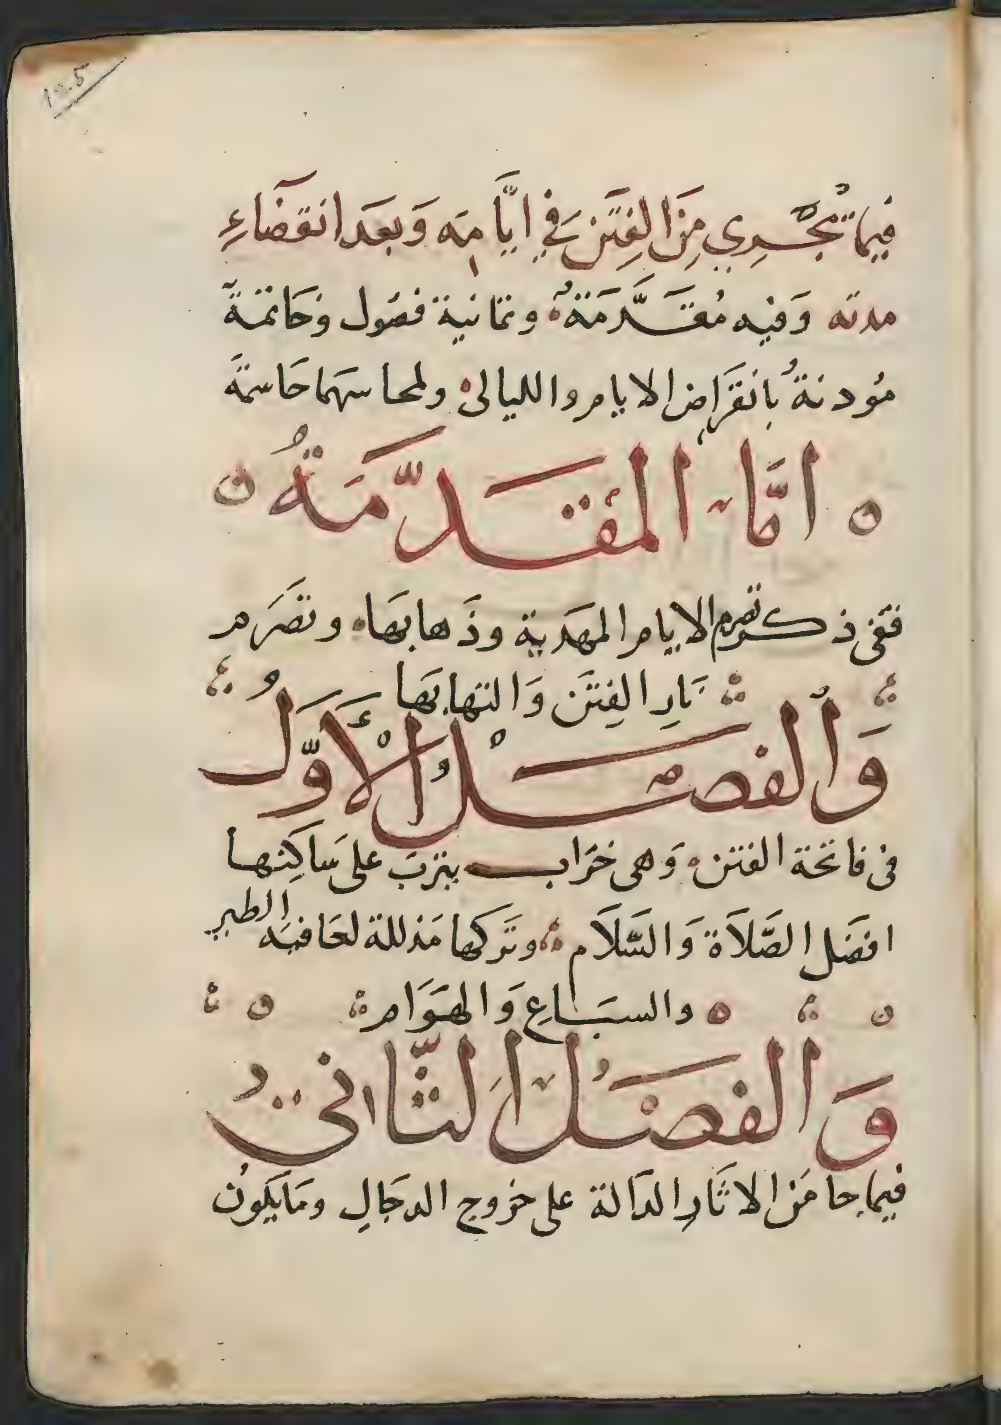 فيما يجري مِنَ الفِتَنِ في ايَّامِه وَبعَد انقضَاءِ
مدته وَفيه مُقَدَّمَةٌ وثمانية فصُول وخَاتمةً
مُودنةُ بانقرَاضِ الايام والليالى ولمحاسنها حَاسمةً
امَّا المقَدّمَةُ
ففى ذكر تصرم الايام المهَدية وذَهابهَا وتضَرم
نَارِ الفِتَن وَالتهابهَا
وَالفصْلُ الأَوّلُ
فى فاتحة الفتن وَهى خرَاب يثربَ على سَاكِنها
افضَل الصَّلاَة وَالسَّلاَم وتَركها مَذللة لعَافيَه الطير
والسبَاعِ وَالهَوَام
وَالفصَلُ الثَّانىُ
فيما جا مَن الاثَارِ الدَالة على خرُوج الدجَالِ ومَايكوُن